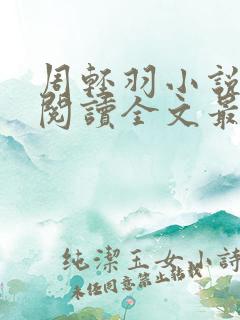 周輕羽小說
閱讀全文最
純潔玉女小詩
未经同意禁止転載